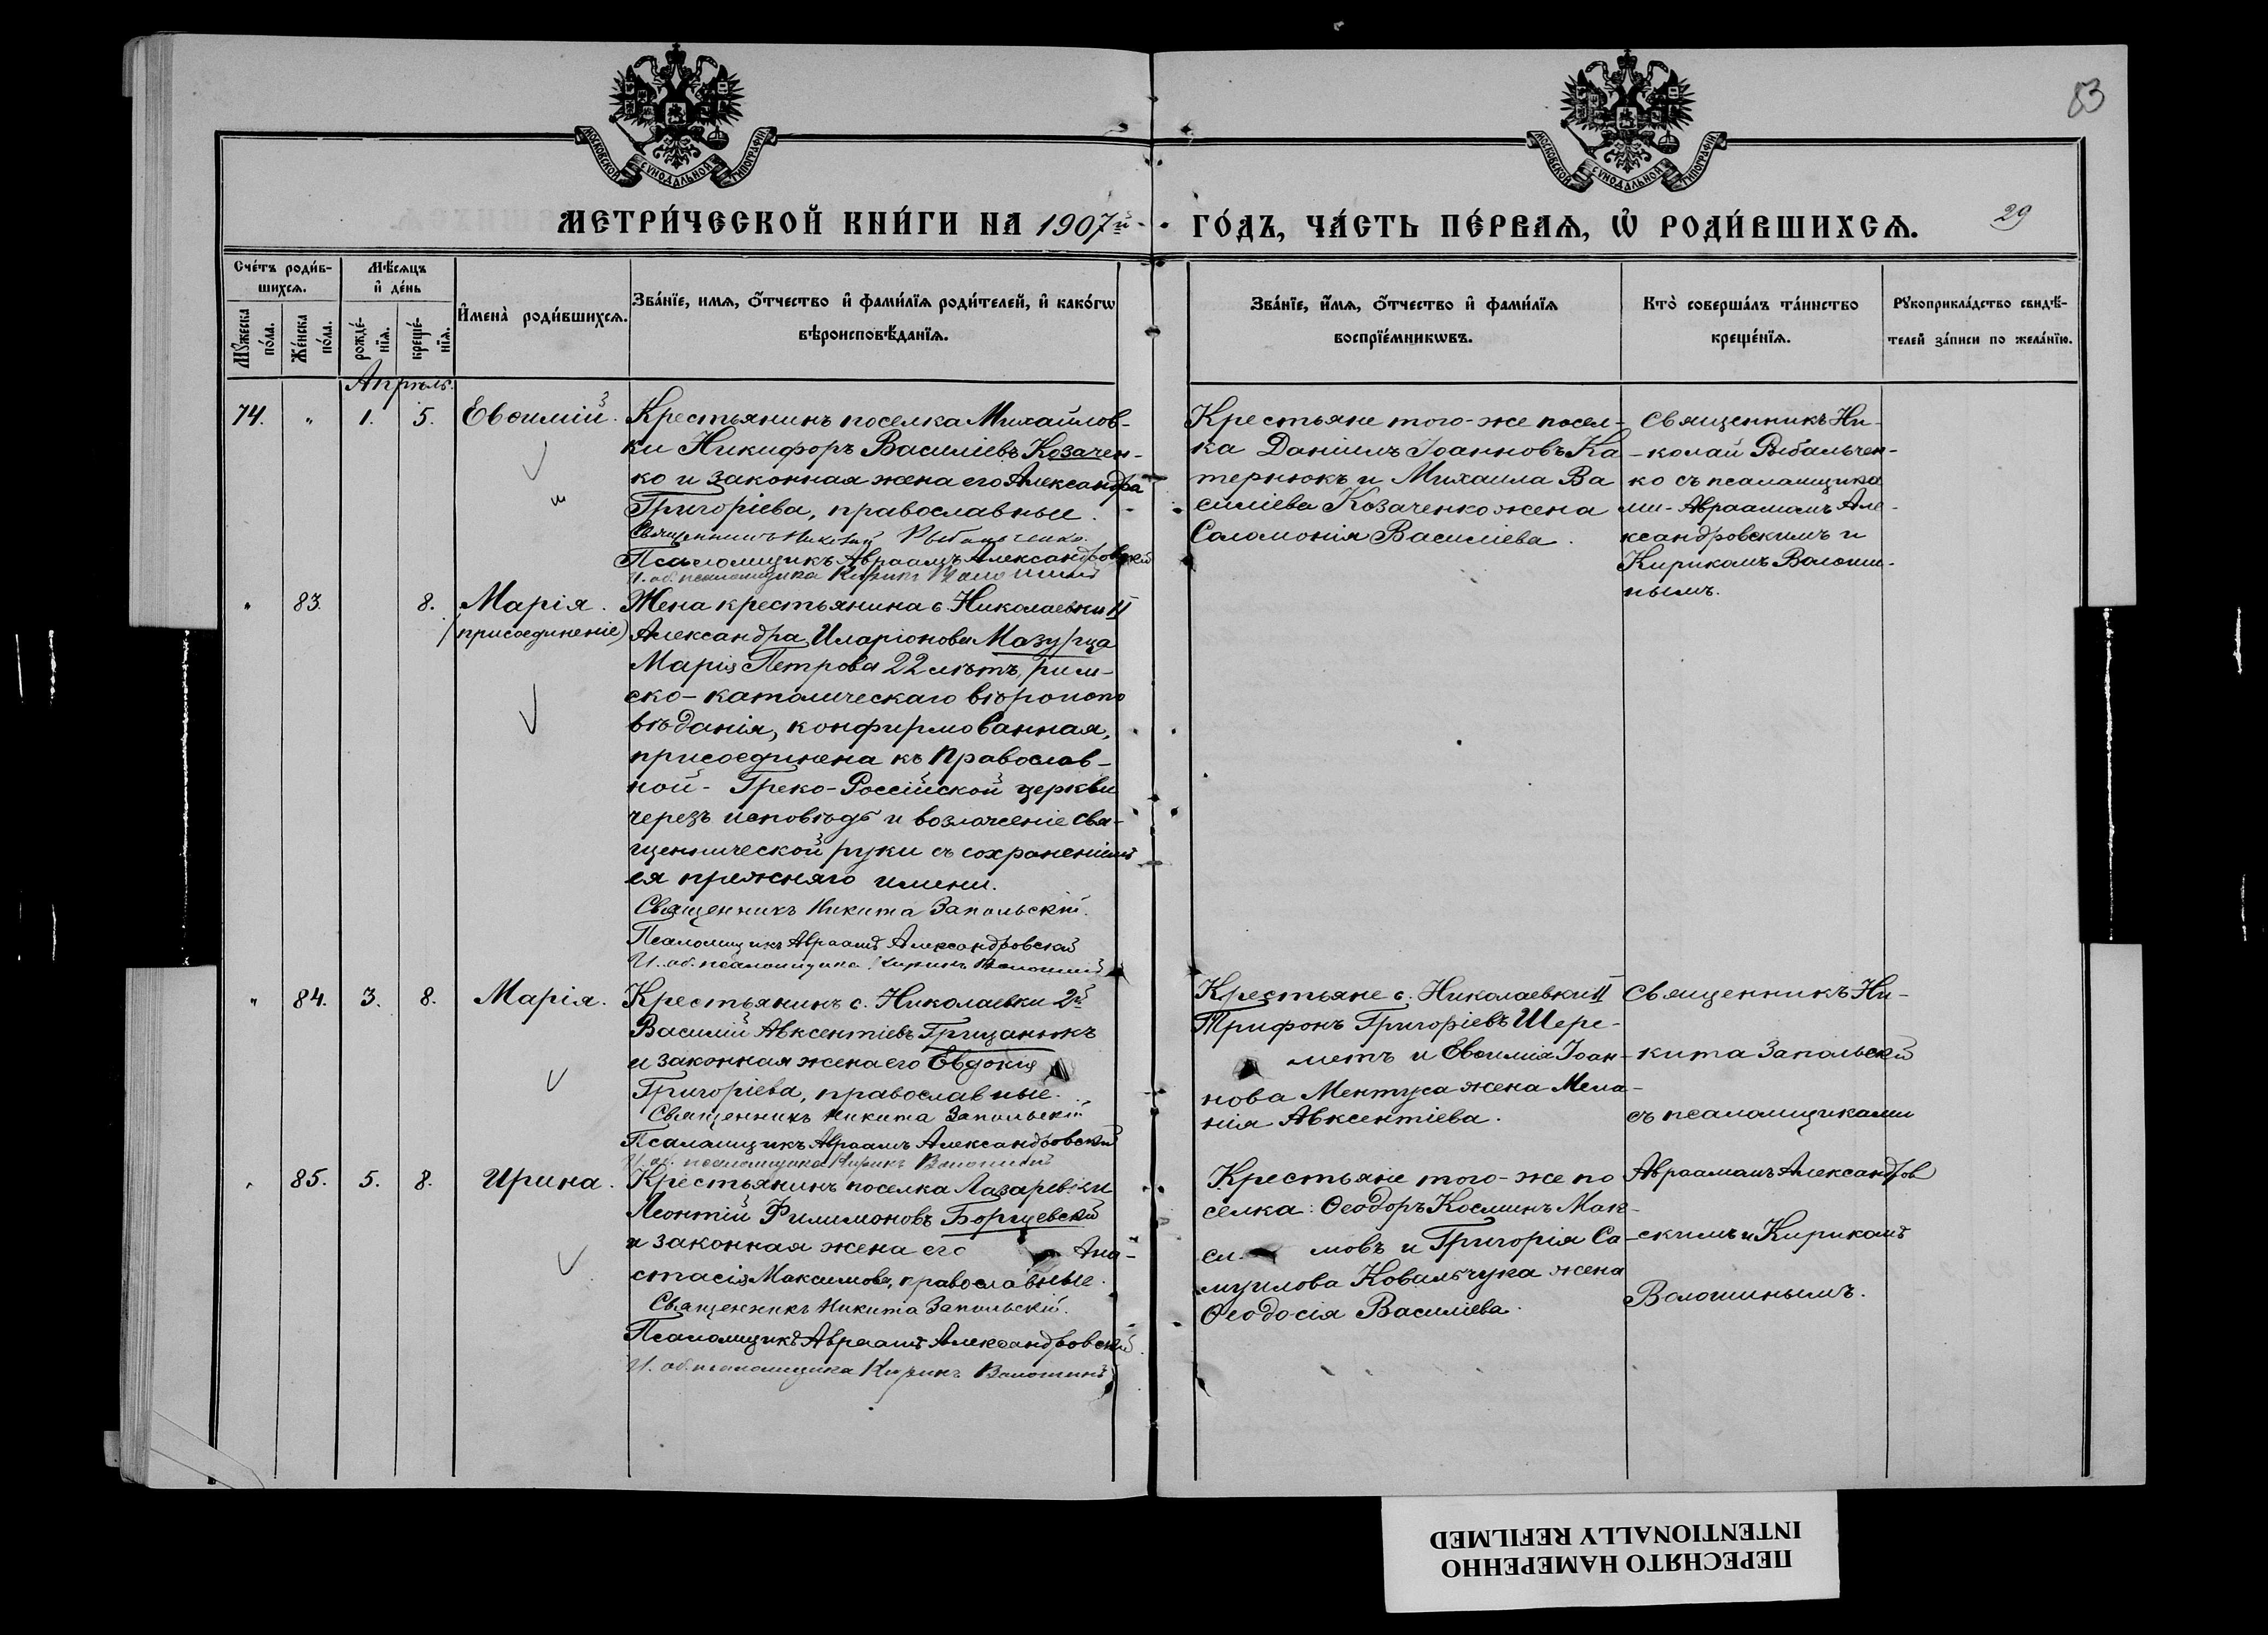 83
МОСКОВСКОЙ СУНОДАЛЬНОЙ ТИПОГРАФІИ
МОСКОВСКОЙ СУНОДАЛЬНОЙ ТИПОГРАФІИ
МЕТРИ́ЧЕСКОЙ КНИ́ГИ НА 1907й
ГО́ДЪ, ЧА́СТЬ ПЕ́РВАЯ, Ѽ РОДИ́ВШИХСЯ.
29
Сче́тъ роди́в-
шихся.
Мѣ́сяцъ
и҆ де́нь
Мꙋ́жеска по́ла.
Же́нска по́ла.
рожде́-
нїя.
креще́-
нїя.
И҆мена̀ роди́вшихся.
Зва́нїе, имя, ѻ҆́тчество и҆ фами́лїя роди́телей, и҆ како́гѡ
вѣроисповѣ́данїя.
Зва́нїе, и҆́мя, ѻ҆́тчество и҆ фами́лїя
воспрїе́мникѡвъ.
Кто̀ соверша́лъ та́инство
креще́нїя.
Рꙋкоприкла́дство свидѣ́-
телей за́писи по жела́нїю.
Апрѣль.
74. " 1. 5. Евѳимій.
Крестьянинъ поселка Михайлов-
ки Никифоръ Василіевъ Козачен-
ко и законная жена его Александра
Григоріева, православные.
Священникъ Николай Рыбальченко.
Псаломщикъ Авраамъ Александровскій
И. об. псаломщика Кирикъ Волошинъ
Крестьяне того-же посел-
ка Даніилъ Іоанновъ Ка
тернюкъ и Михаила Ва
силіева Козаченко жена
Саломонія Василіева.
Священникъ Ни-
колай Рыбальчен-
ко съ псаломщика
ми- Авраамомъ Але-
ксандровскимъ и
Кирикомъ Волоши-
нымъ.
" 83. 8. Марія.
(присоединеніе)
Жена крестьянина с. Николаевки II
Александра Иларіонова Мазурца
Марія Петрова 22 лѣтъ, рим-
ско-католическаго вѣроиспо
вѣданія, конфирмованная,
присоединена къ Православ-
ной- Греко-Россійской церкви
черезъ исповѣдь и возложеніе свя-
щеннической руки съ сохраненіемъ
ея прежняго имени.
Священникъ Никита Запольскій.
Псаломщикъ Авраамъ Александровскій
И. об. псаломщика Кирикъ Волошинъ
" 84. 3. 8. Марія.
Крестьянинъ с. Николаевки 2й
Василій Авксентіевъ Грицанюкъ
и законная жена его Евдокія
Григоріева, православные.
Священникъ Никита Запольскій
Псаломщикъ Авраамъ Александровскій
И. об. псаломщика Кирикъ Волошинъ
Крестьяне с. Николаевки II
Трифонъ Григоріевъ Шере-
метъ и Евѳимія Іоан-
нова Ментуса жена Мела-
нія Авксентіева.
Священникъ Ни-
кита Запольскій
съ псаломщиками
" 85. 5. 8. Ирина.
Крестьянинъ поселка Лазаревки
Леонтій Филимоновъ Борщевскій
и законная жена его Ана-
стасія Максимова, православные.
Священникъ Никита Запольскій.
Псаломщикъ Авраамъ Александровскій.
И. об. псаломщика Кирикъ Волошинъ
Крестьяне того-же по
селка: Ѳеодоръ Косминъ Мак-
си мовъ и Григорія Са-
муилова Ковальчука жена
Ѳеодосія Василіева.
Авраамомъ Александров
скимъ и Кирикомъ
Волошинымъ.
ПЕРЕСНЯТО НАМЕРЕННО
INTENTIONALLY REFILMED